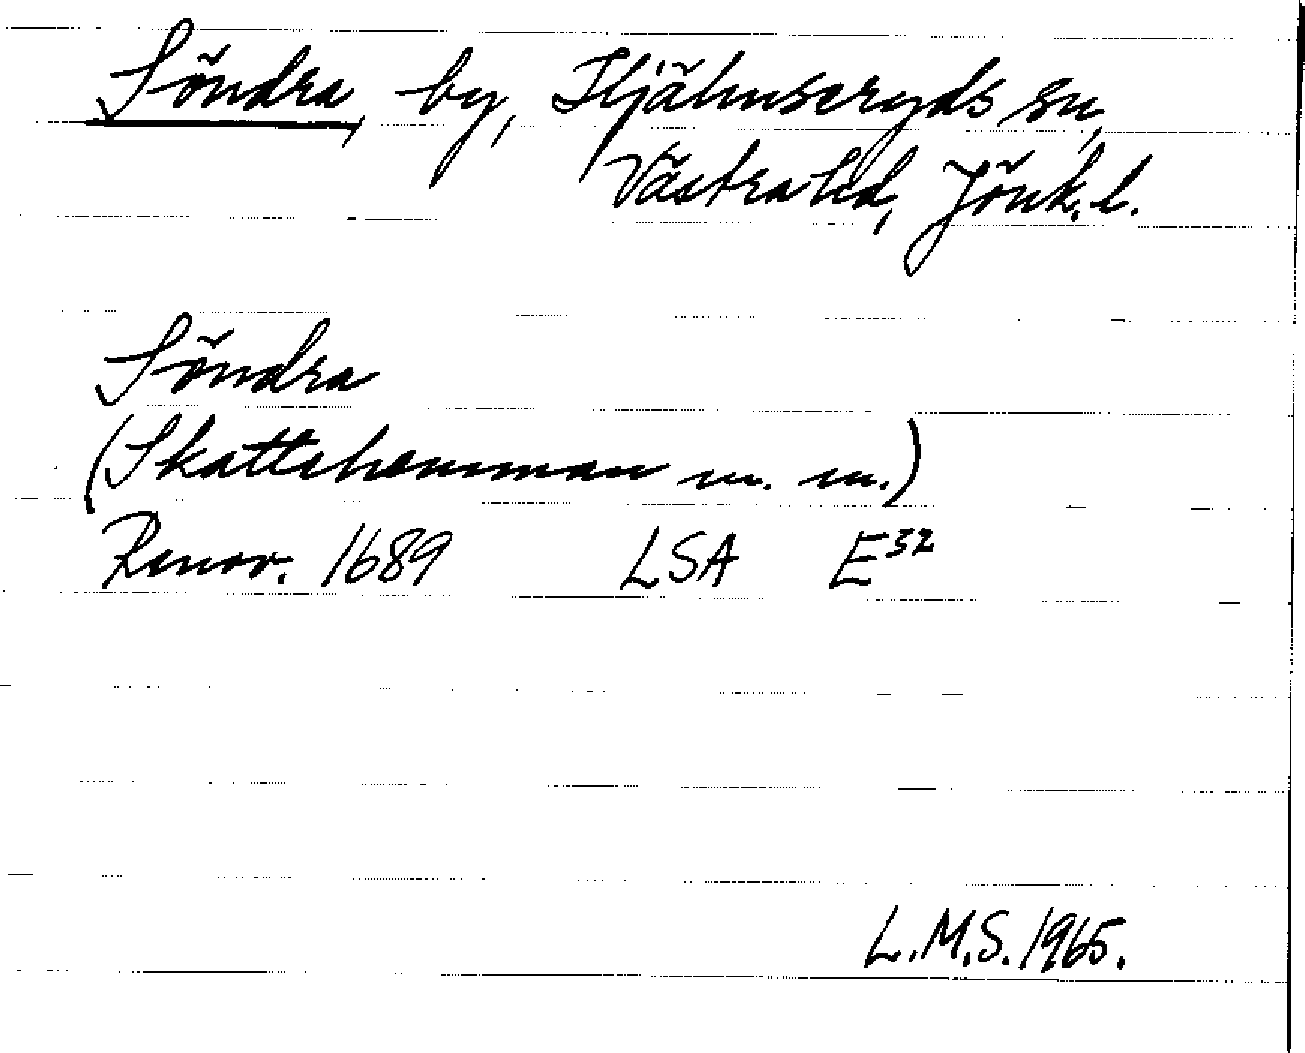 Söndra, by, Hjälmseryds sn,
Västra hd, Jönk. l.
Söndra
(Skattehemman m. m.)
Renov. 1689 LSA E32
L.M.S. 1965.